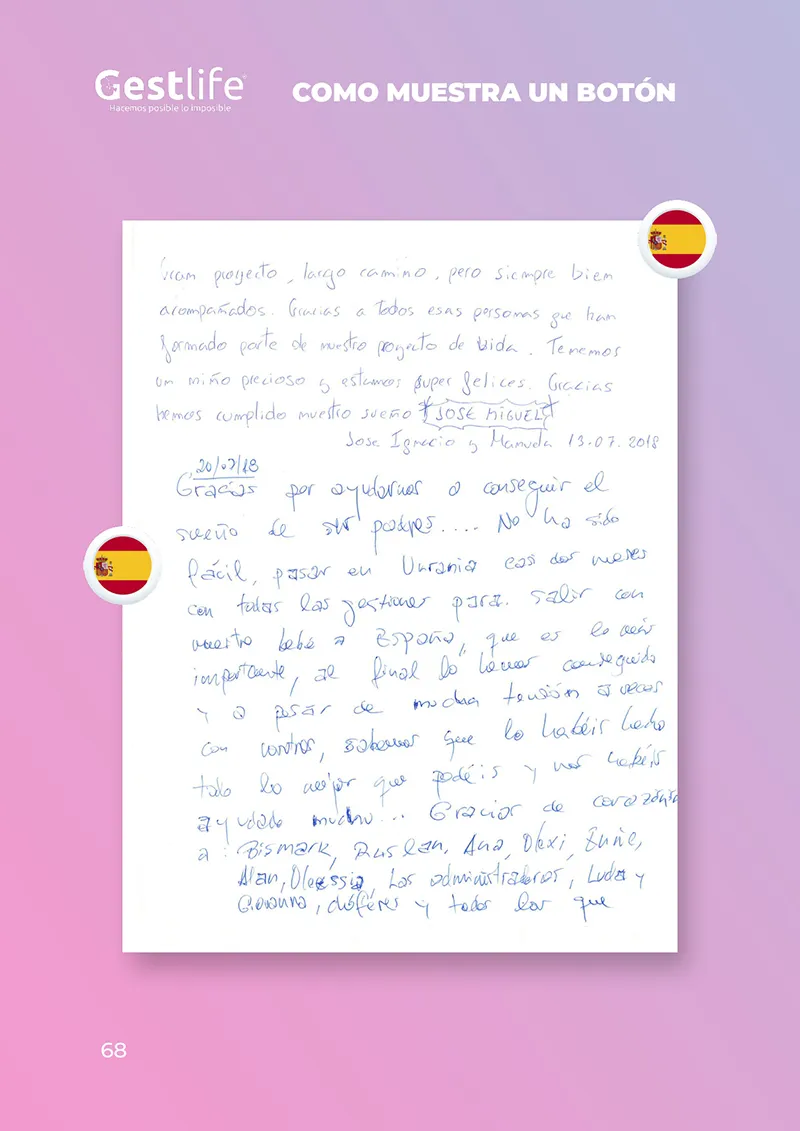 Gestlife®
Hacemos posible lo imposible
COMO MUESTRA UN BOTÓN
Gram proyecto, largo camino, pero siempre biem
acompañados. Gracias a todos esas personas que ham
formado parte de nuestro proyecto de vida. Tememos
um miño precioso y estamos super felices. Gracias
hemos cumplido muestro sueño JOSE MIGUEL
Jose Ignacio y Manuela 13.07.2018
20/07/18
Gracias por ayudarnos a conseguir el
sueño de ser padres.... No ha sido
fácil, pasar en Ucrania casi dos meses
con todas las gestiones para salir con
nuestro bebé a España, que es lo más
importante, al final lo hemos conseguido
y a pesar de mucha tensión a veces
con vosotros, sabemos que lo habéis hecho
todo lo mejor que podéis y nos habéis
ayudado mucho... Gracias de corazón
a: Bismark, Ruslan, Ana, Olexi,
Alan, Olessia, Los administradores, Luda y
Giovanna, chóferes y todos los que
68